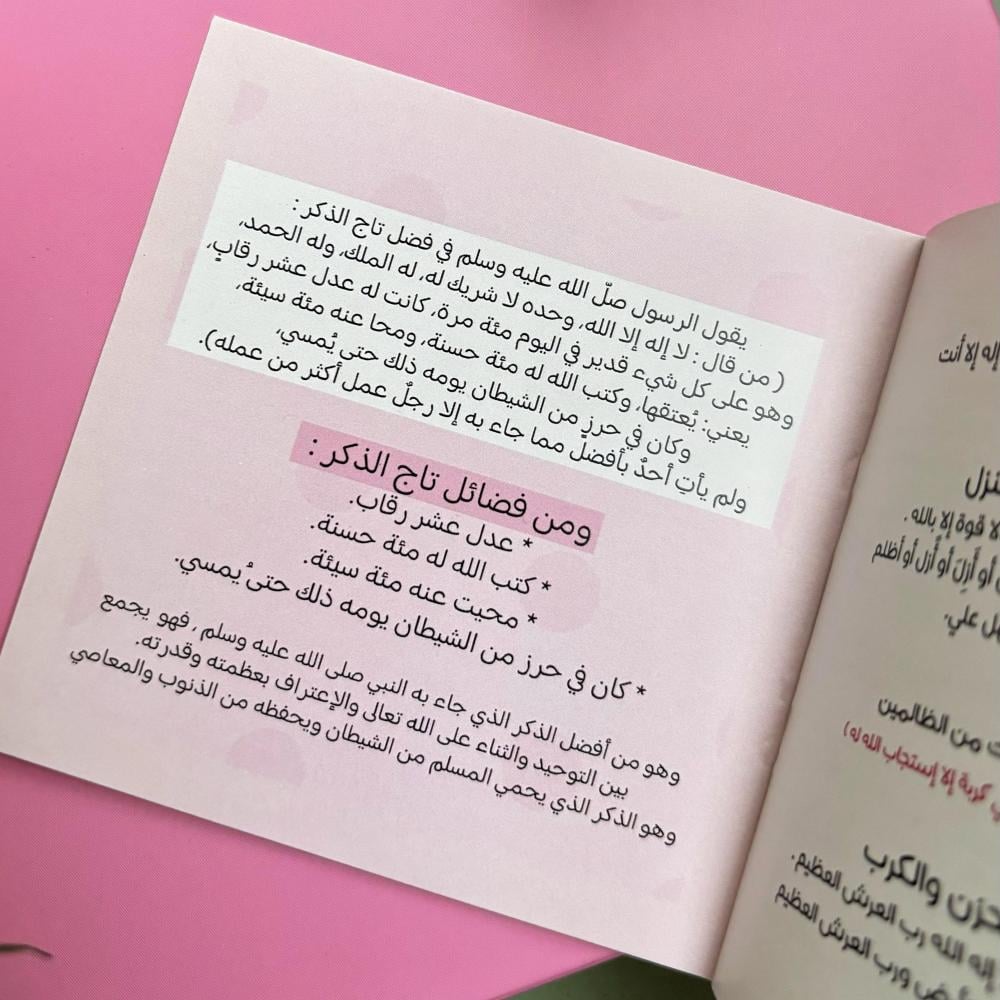 يقول الرسول صلّ الله عليه وسلم في فضل تاج الذكر :
( من قال : لا إله إلا الله، وحده لا شريك له، له الملك، وله الحمد،
وهو على كل شيء قدير في اليوم مئة مرة، كانت له عدل عشر رقابٍ،
يعني: يُعتقها، وكتب الله له مئة حسنة، ومحا عنه مئة سيئة،
وكان في حرزٍ من الشيطان يومه ذلك حتى يُمسي،
ولم يأتِ أحدٌ بأفضل مما جاء به إلا رجلٌ عمل أكثر من عمله).
ومن فضائل تاج الذكر :
* عدل عشر رقاب.
* كتب الله له مئة حسنة.
* محيت عنه مئة سيئة.
* كان في حرز من الشيطان يومه ذلك حتىُ يمسي.
وهو من أفضل الذكر الذي جاء به النبي صلى الله عليه وسلم , فهو يجمع
بين التوحيد والثناء على الله تعالى والإعتراف بعظمته وقدرته.
وهو الذكر الذي يحمي المسلم من الشيطان ويحفظه من الذنوب والمعاصي
إله إلا أنت
قوة إلا بالله .
أو أَزِلَ أو أُزل أو أظلم
علي.
من الظالمين
كربة إلا إستجاب الله له )
والكرب
إله الله رب العرش العظيم.
ورب العرش العظيم